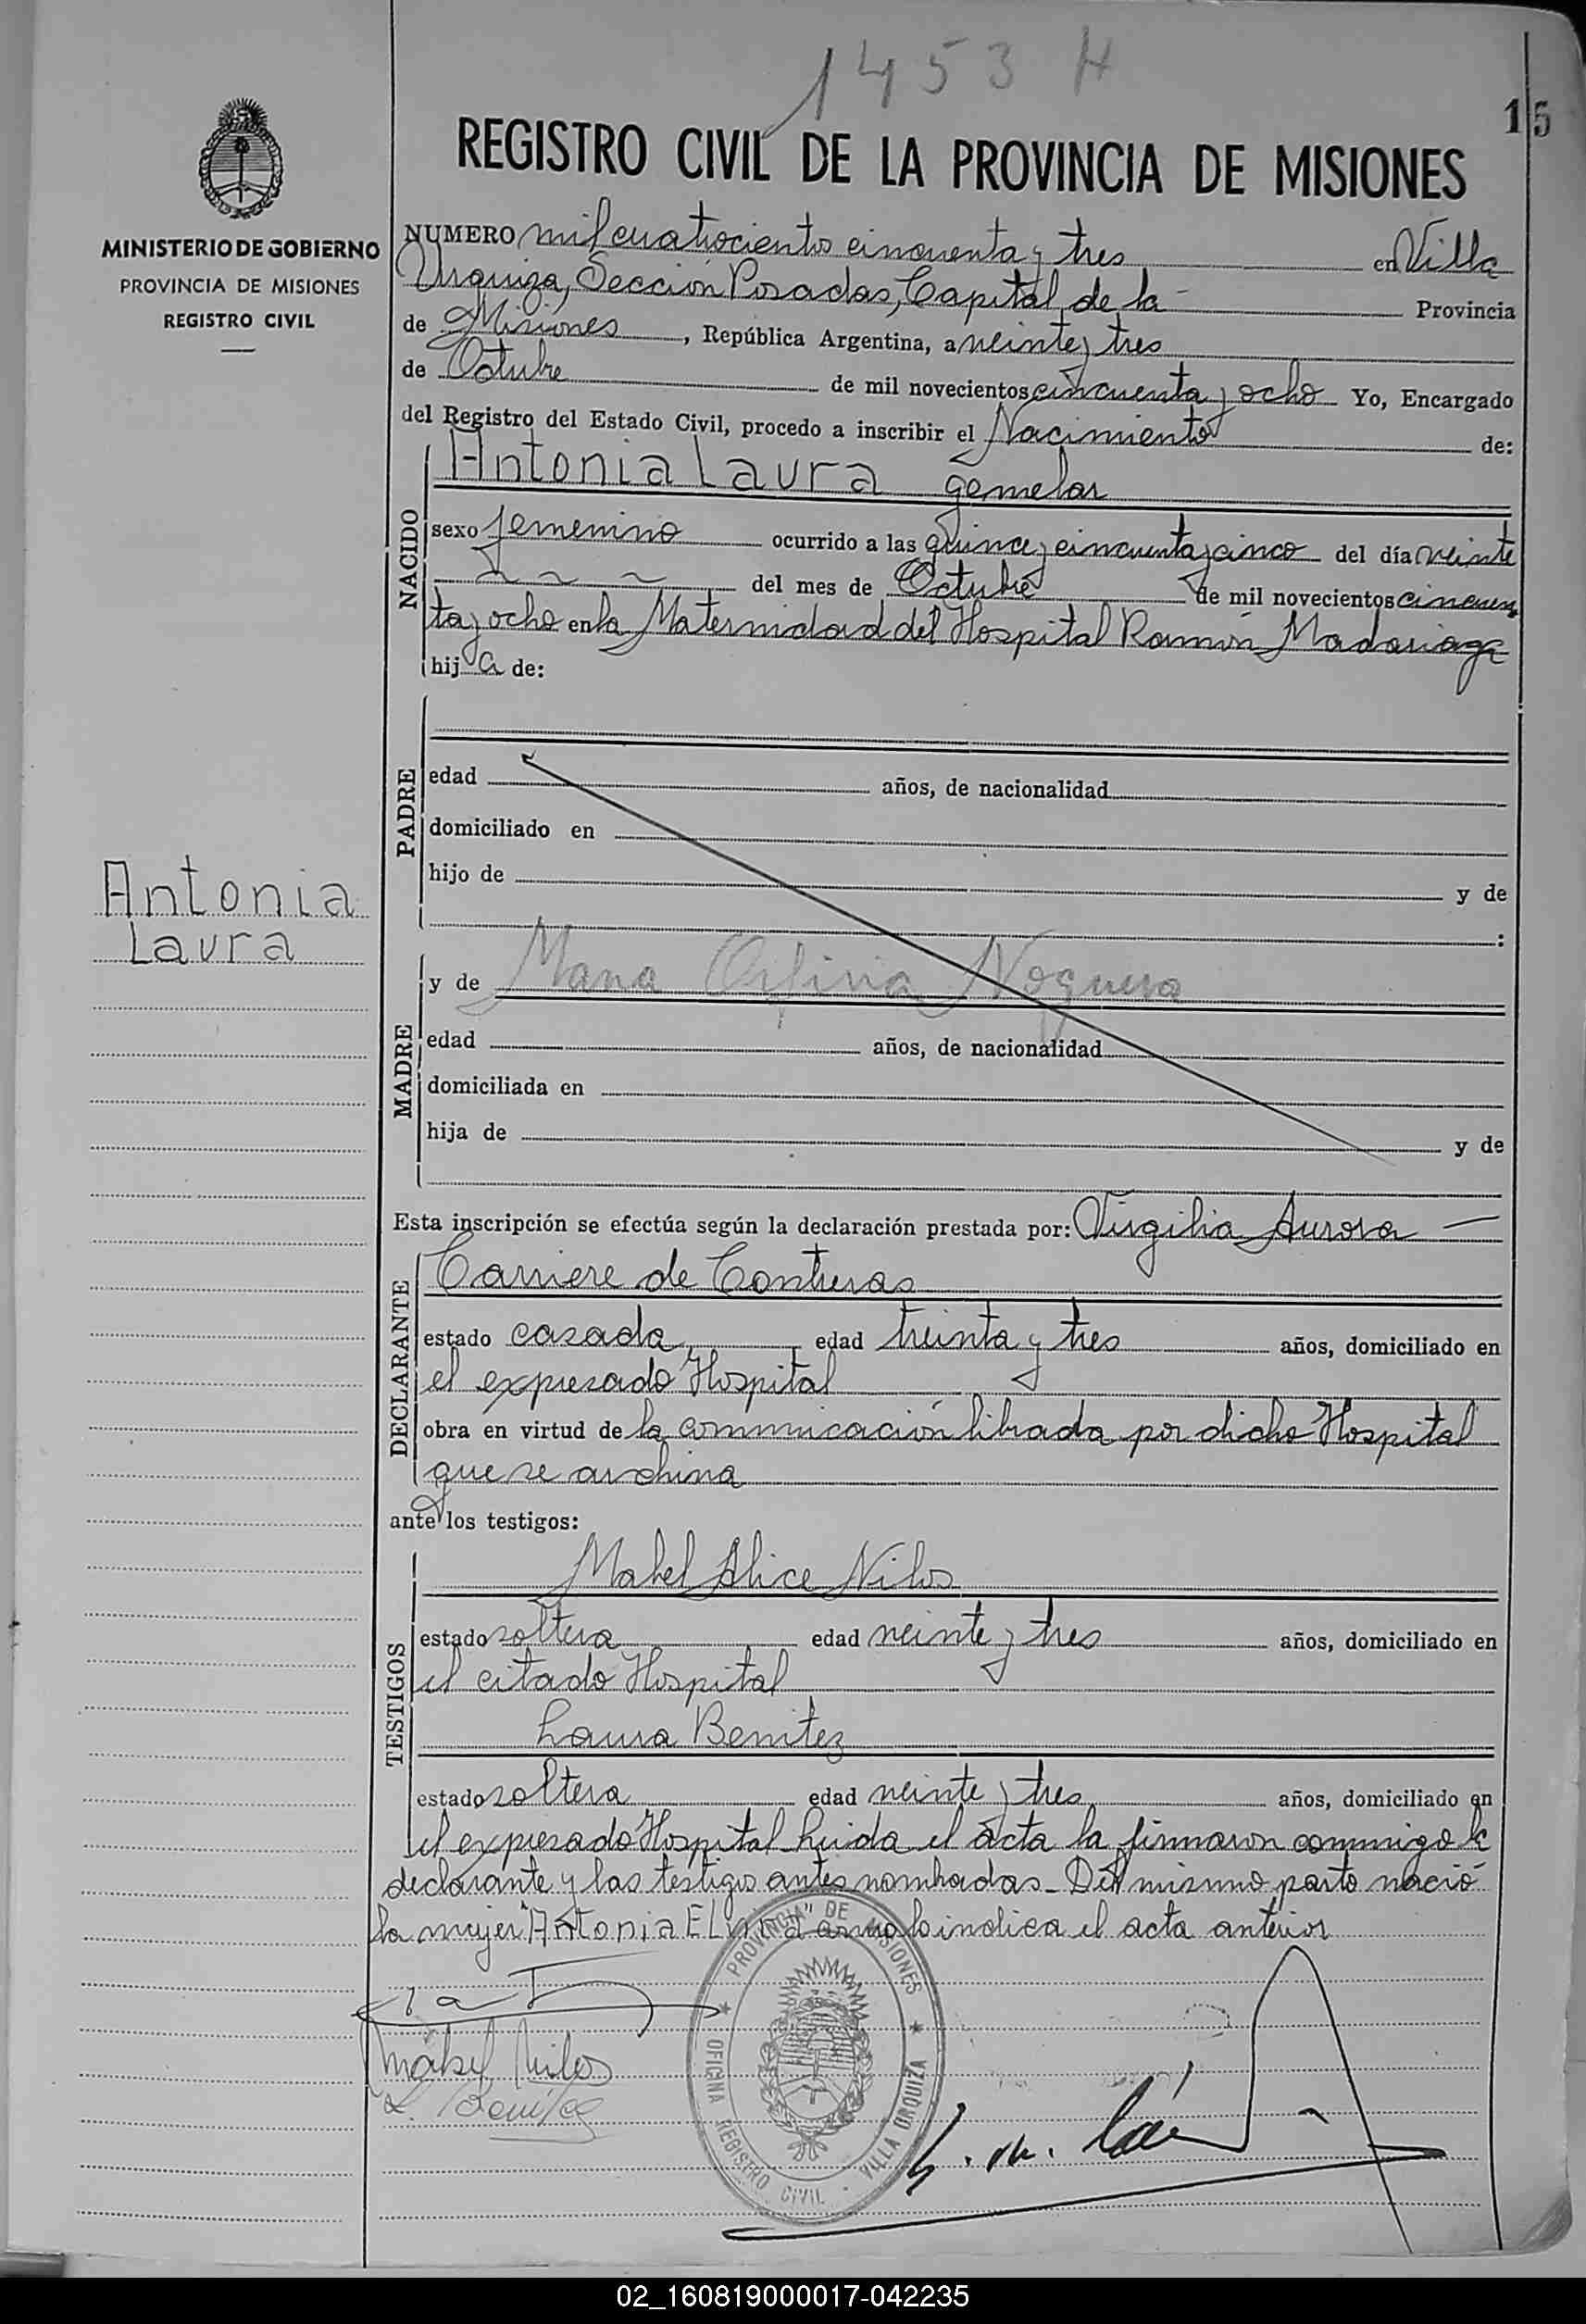 1453 H
15
MINISTERIO DE GOBIERNO
PROVINCIA DE MISIONES
REGISTRO CIVIL
REGISTRO CIVIL DE LA PROVINCIA DE MISIONES
NUMERO mil cuatrocientos cincuenta y tres en Villa
Urquiza, Sección Posadas, Capital de la Provincia
de Misiones, República Argentina, a veinte y tres
de Octubre de mil novecientos cincuenta y ocho Yo, Encargado
del Registro del Estado Civil, procedo a inscribir el Nacimiento de:
NACIDO
Antonia Laura gemelar
sexo femenino ocurrido a las quince y cincuenta y cinco del día veinte
del mes de Octubre de mil novecientos cincuen
ta y ocho en la Maternidad del Hospital Ramón Madariaga
hija de:
PADRE
edad años, de nacionalidad
domiciliado en
hijo de y de
:
Antonia
Laura
MADRE
y de Maria Noguera
edad años, de nacionalidad
domiciliada en
hija de y de
Esta inscripción se efectúa según la declaración prestada por: Virgilia Aurora
DECLARANTE
Carriere de Contreras
estado casada edad treinta y tres años, domiciliado en
el expresado Hospital
obra en virtud de la comunicación librada por dicho Hospital
que se archiva
ante los testigos:
TESTIGOS
Mabel Alice Nilos
estado soltera edad veinte y tres años, domiciliado en
el citado Hospital
Laura Benitez
estado soltera edad veinte y tres años, domiciliado en
el expresado Hospital leida el acta la firmaron conmigo la
declarante y las testigos antes nombradas - Del mismo parto nació
la mujer "Antonia Elvira" como lo indica el acta anterior
Mabel Nilos
L. Benitez
PROVINCIA DE MISIONES
OFICINA REGISTRO CIVIL - VILLA URQUIZA
02_160819000017-042235